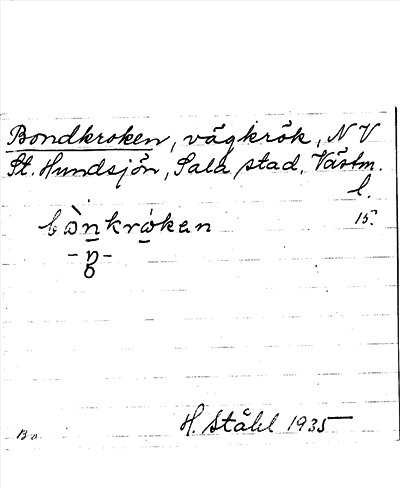 Bondkroken, vägkrök, NV
St. Hundsjön, Sala stad, Västm.
l.
15.
bònkrokan
H. Ståhl 1935
Bo